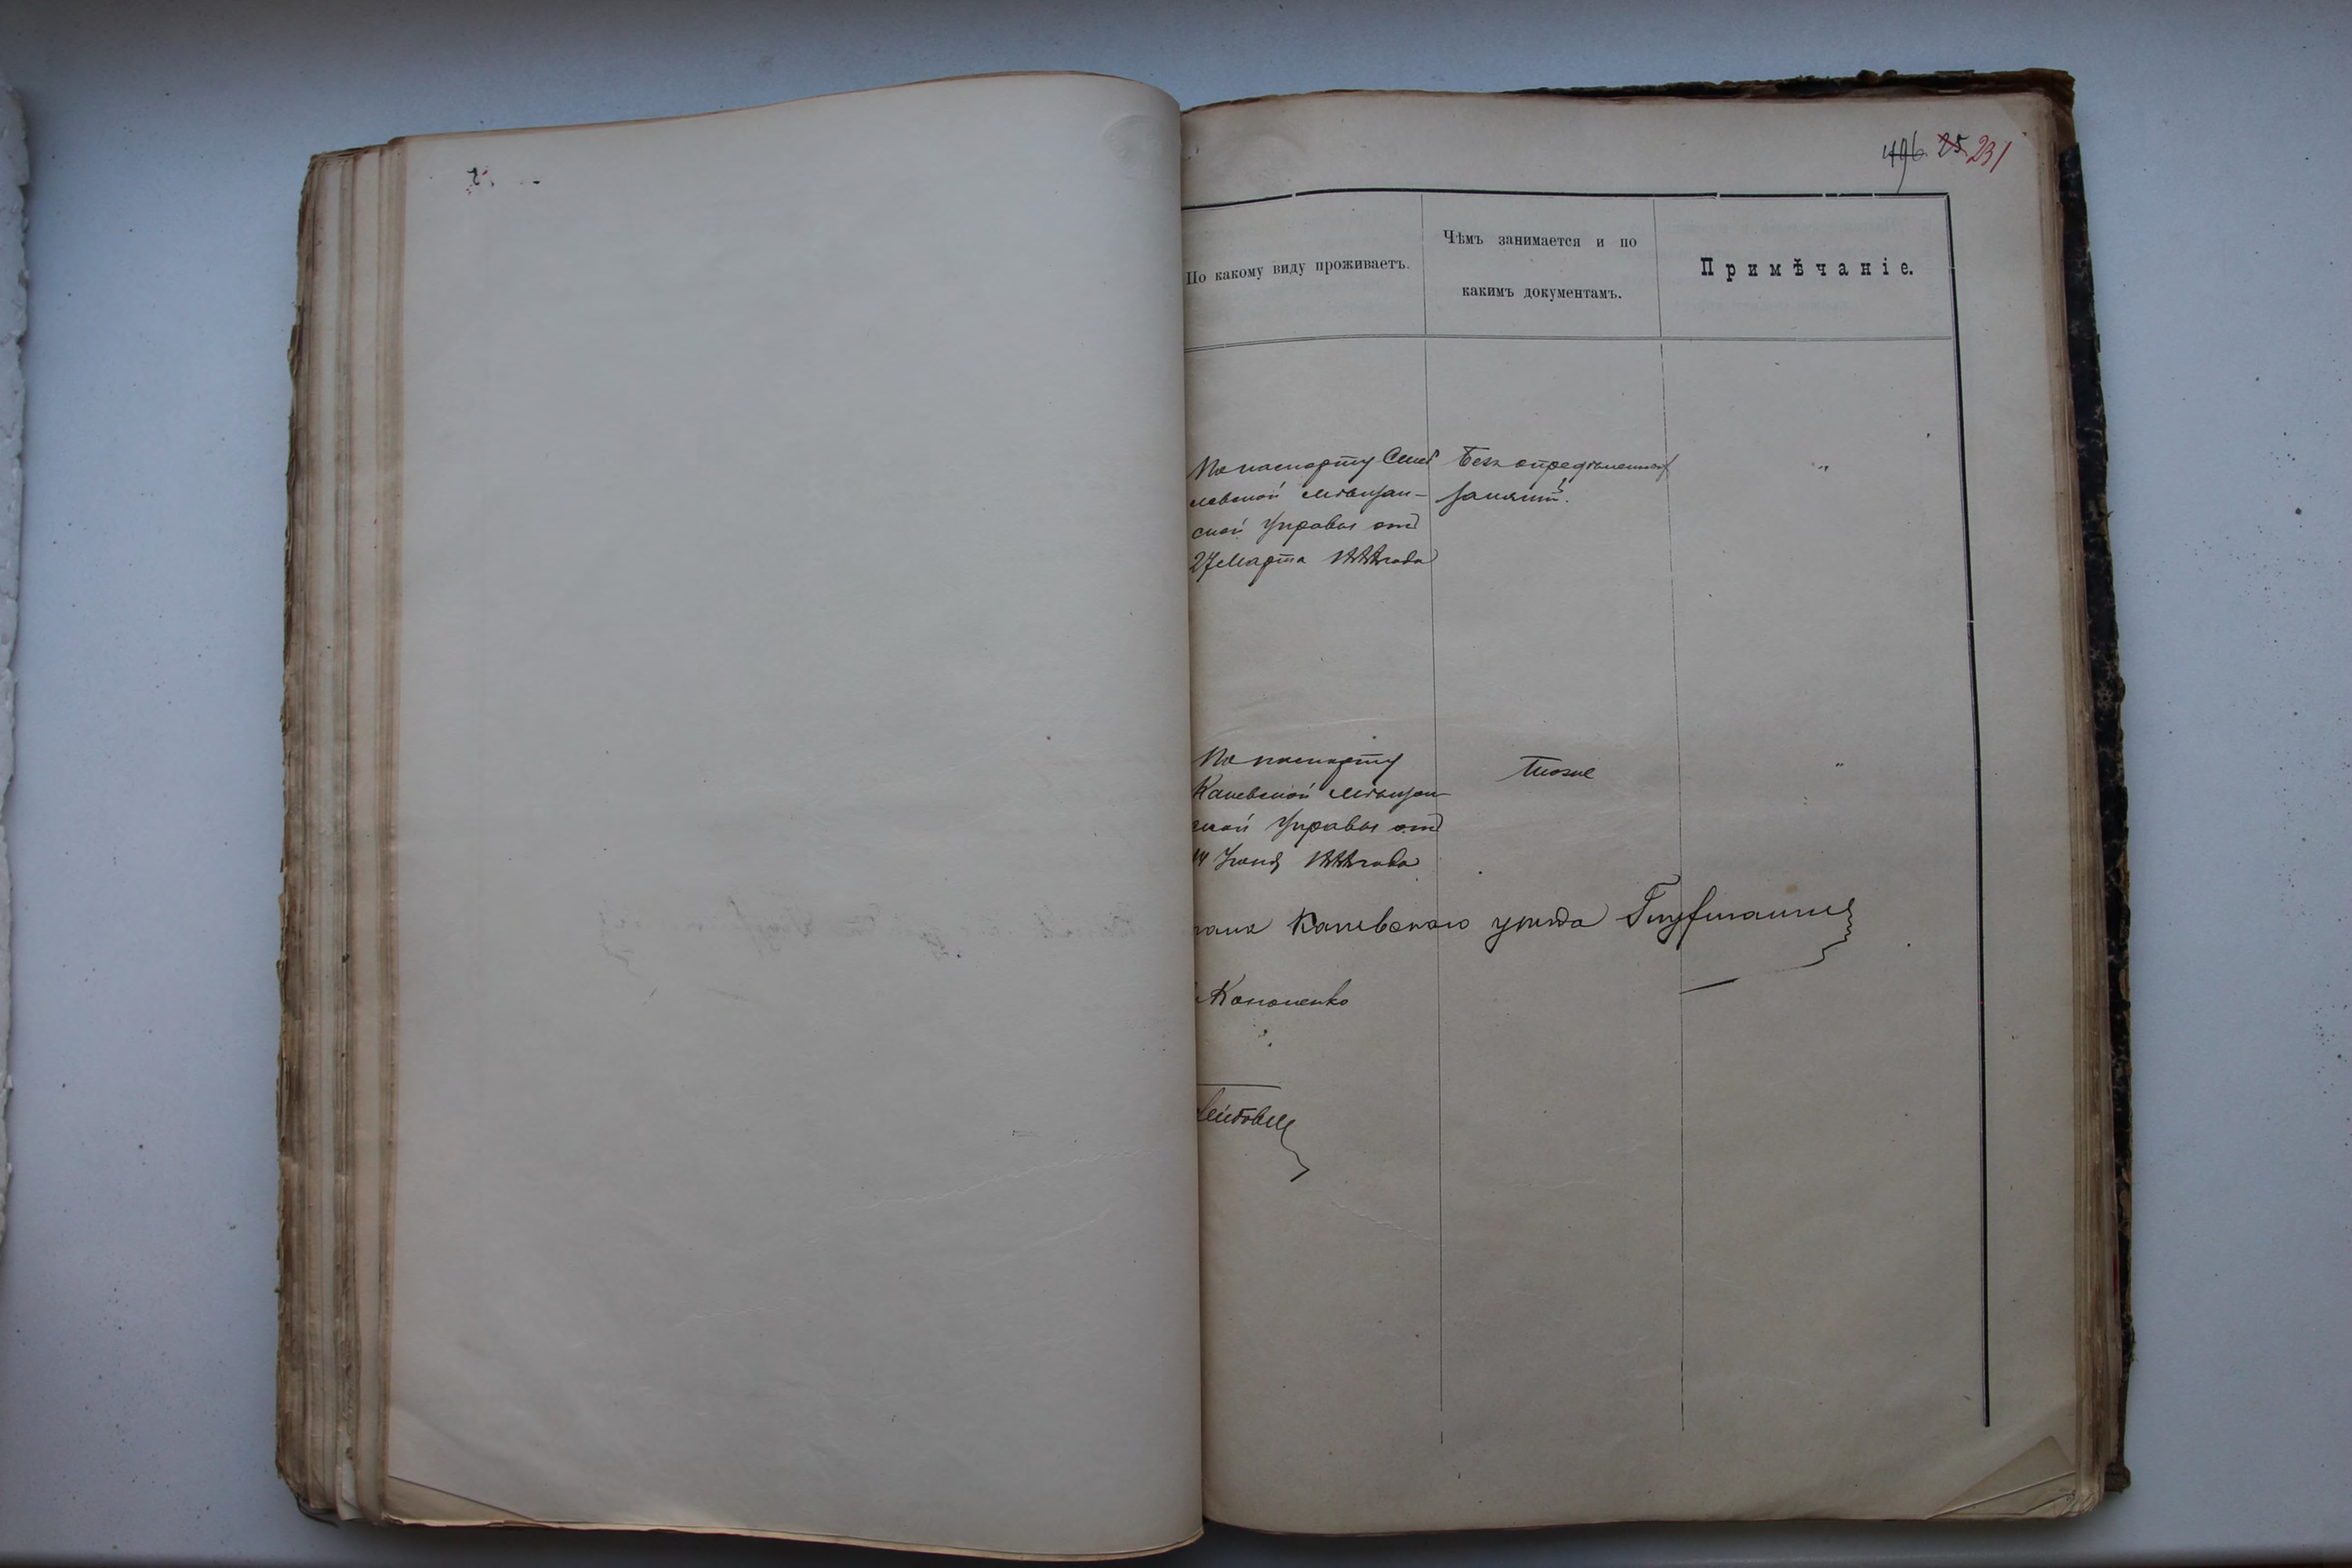 496 25 231
По какому виду проживаетъ.
Чѣмъ занимается и по
какимъ документамъ.
Примѣчаніе.
По паспорту
мѣщан-
ской Управы отъ
27 Марта 1888 года
Безъ опредѣленныхъ
занятій.
"
По паспорту
Каневской мѣщан-
ской Управы отъ
14 Іюня 1888 года
Тоже
"
Каневского уѣзда
Кононенко